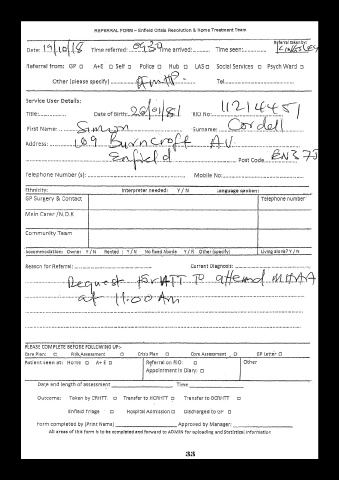 REFERRAL FORM – Enfield Crisis Resolution & Home Treatment Team
Referral taken by:
Date: 19/10/18 Time referred: 0930 Time arrived: Time seen: KINGSLEY
Referral from: GP □ A+E □ Self □ Police □ Hub □ LAS □ Social Services □ Psych Ward □
Other (please specify) Tel
Service User Details:
Title: Date of Birth: RIO No: 11214451
First Name: Simon Surname: Cordell
Address: 109 Burncroft AV
Enfield Post Code EN3 7J
Telephone Number (s): Mobile No:
Ethnicity: Interpreter needed: Y / N Language spoken:
GP Surgery & Contact Telephone number
Main Carer / N.O.K
Community Team
Accommodation: Owner Y / N Rented Y / N No fixed Abode Y / N Other (specify) Living alone? Y / N
Reason for Referral: Current Diagnosis:
Request for ATT to attend MHAA
at 11:00 Am
PLEASE COMPLETE BEFORE FOLLOWING UP:-
Care Plan: □ Risk Assessment □ Crisis Plan □ Core Assessment □ GP Letter □
Patient seen at: Home □ A+E □ Referral on RIO: □ Other
Appointment in Diary: □
Date and length of assessment Time
Outcome: Taken by CRHTT □ Transfer to HCRHTT □ Transfer to BCRHTT □
Enfield Triage □ Hospital Admission □ Discharged to GP □
Form completed by (Print Name) Approved by Manager:
All areas of this form is to be completed and forward to ADMIN for uploading and Statistical information
33